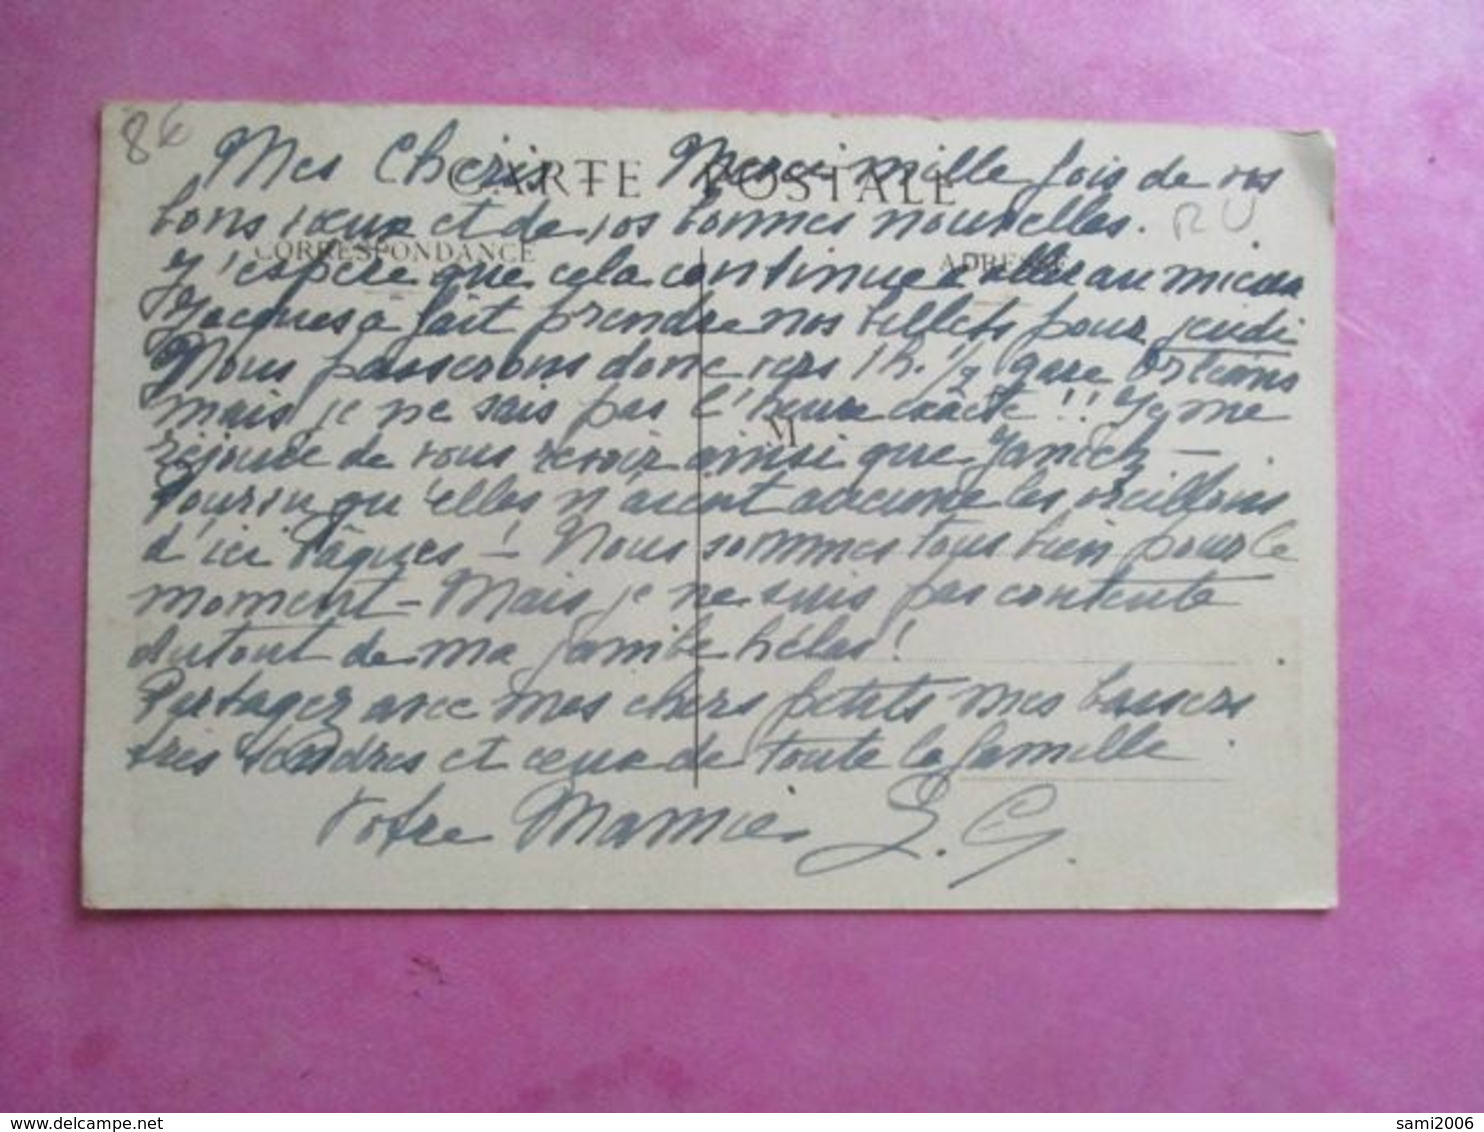 8€
Mes Cheris Merci mille fois de vos
CARTE POSTALE
bons vœux et de vos bonnes nouvelles.
RU
CORRESPONDANCE ADRESSE
J'espère que cela continue d'aller au mieux
Jacques a fait prendre nos billets pour jeudi
Nous passerons donc vers 1h. 1/2 gare Orléans
mais je ne sais pas l'heure exacte!! Je me
M
réjouie de vous revoir ainsi que Janick -
Pourvu qu'elles n'aient aucune les oreillons
d'ici Pâques! - Nous sommes tous bien pour le
moment - Mais je ne suis pas contente
du tout de ma jambe hélas!
Partagez avec mes chers petits mes baisers
très tendres et ceux de toute la famille
Votre Mamie S. G.
sami2006